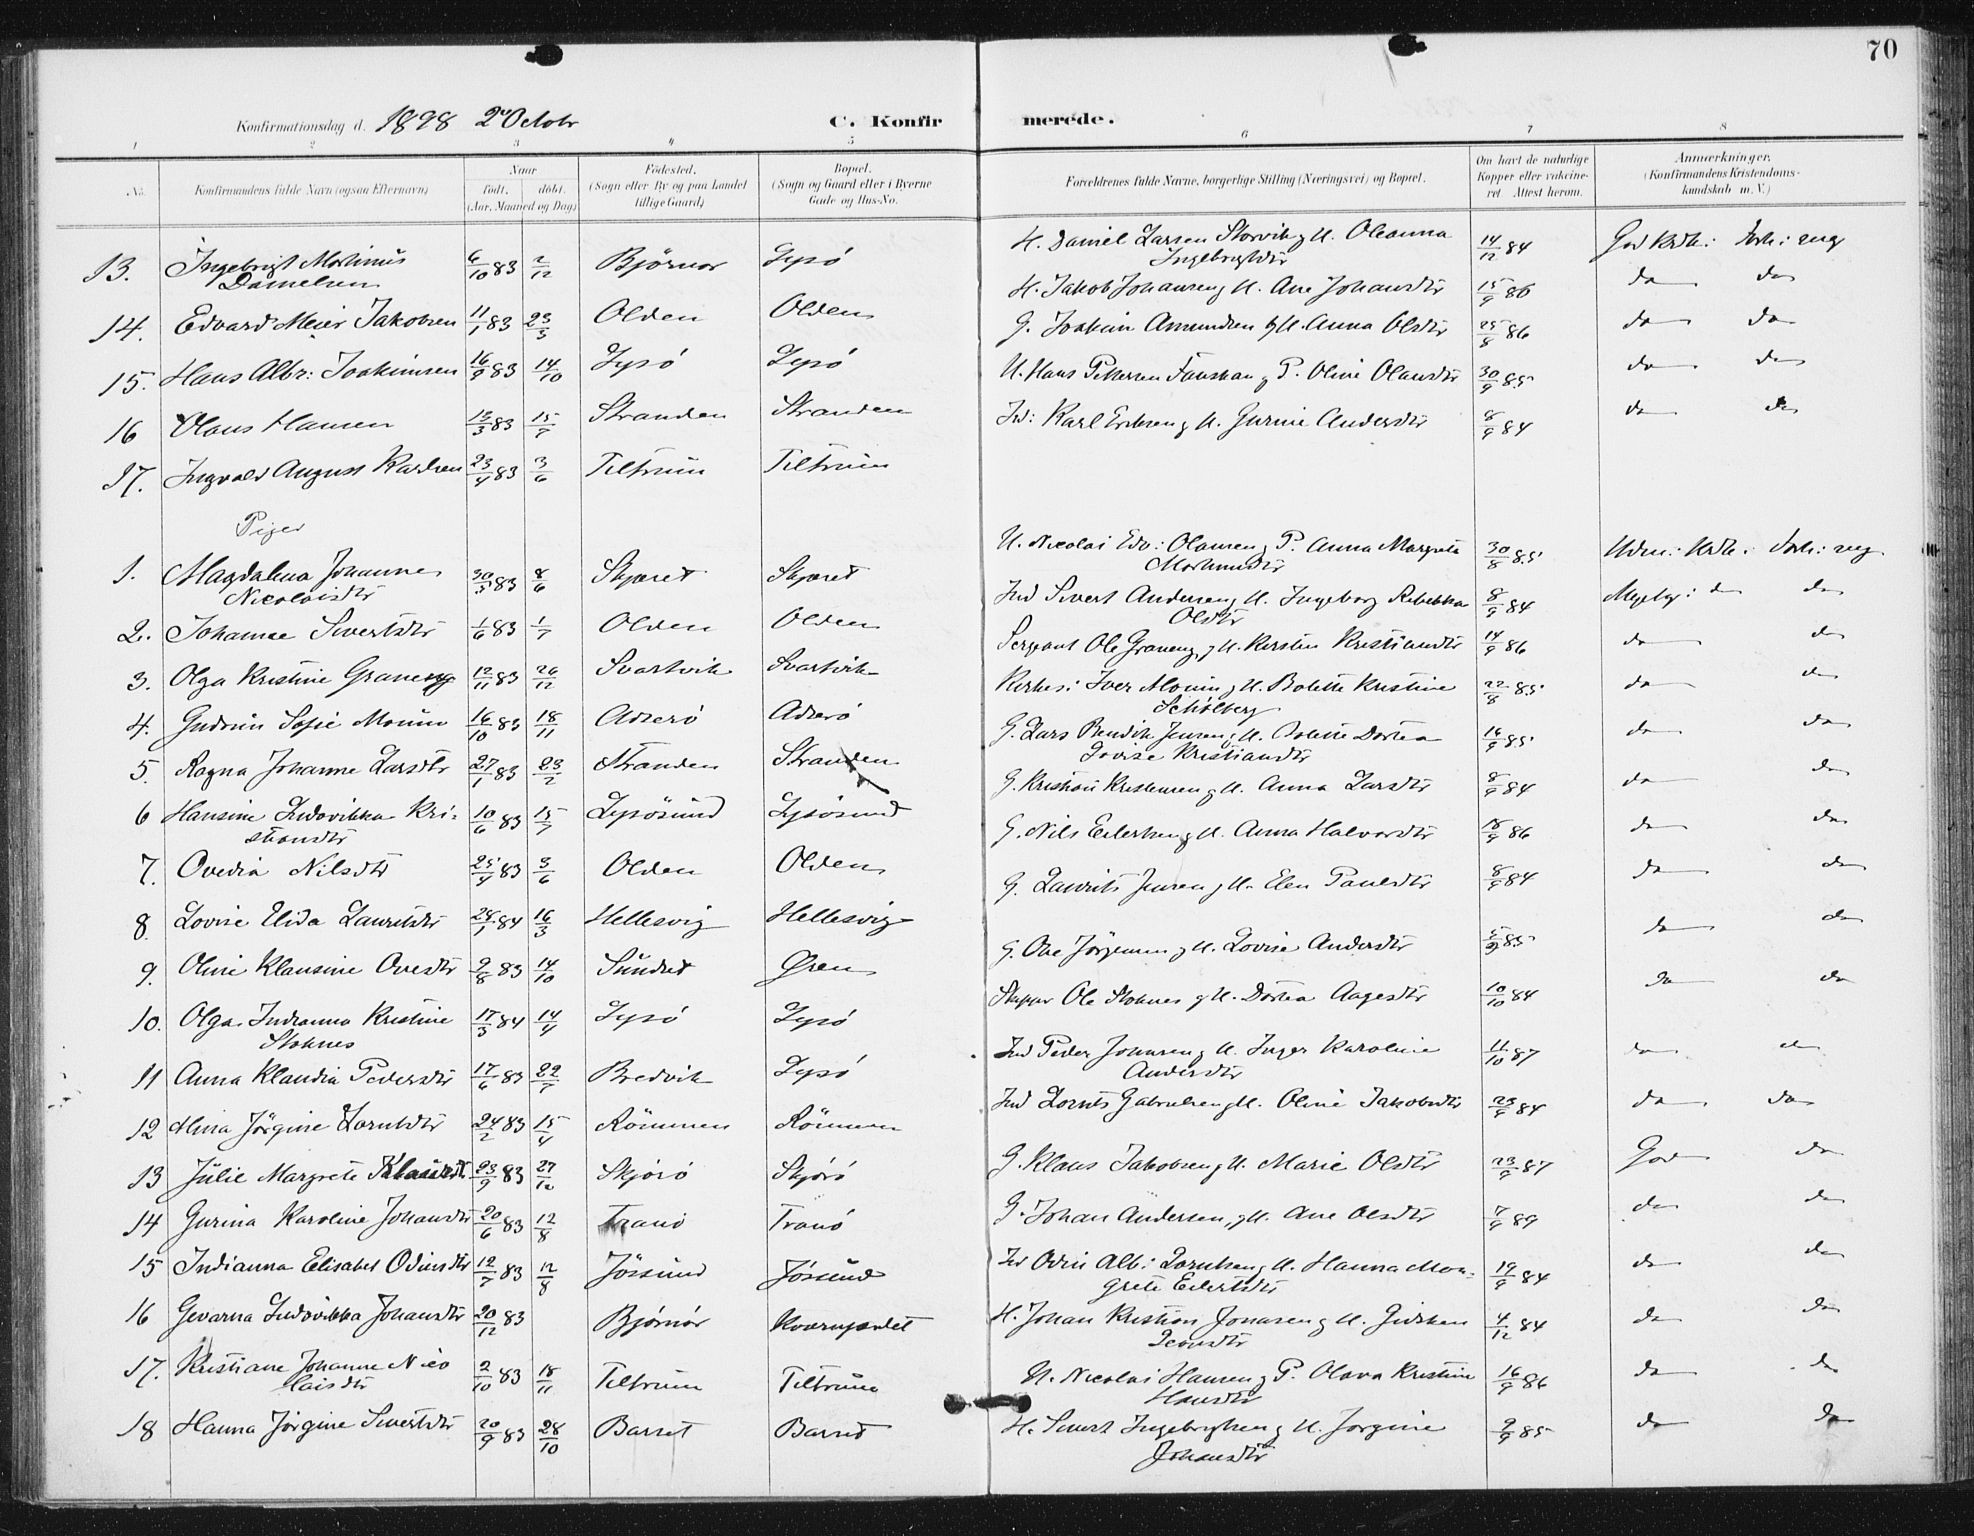 70
Konfirmationsdag d. 1898 2 Octobr C. Konfirmerede.
1 2 3 4 5 6 7 8
No. Konfirmandens fulde Navn (ogsaa Efternavn) Naar födt. döbt. (Aar, Maaned og Dag) Födested. (Sogn eller By og paa Landet tillige Gaard) Bopæl. (Sogn og Gaard eller i Byerne Gade og Hus-No. Forældrenes fulde Navne, borgerlige Stilling (Næringsvei) og Bopæl. Om havt de naturlige Kopper eller vakcineret. Attest herom. Anmærkninger. (Konfirmandens Kristendomskundskab m. V.)
13. Ingebrigt Martinus Danielsen 6/10 83 2/12 Björnør Lysö H. Daniel Larsen Storvik og H. Oleanna Ingebrigtdtr 14/12 84
14. Edvard Meier Jakobsen 11/1 83 23/3 Olden Olden H. Jakob Johansen og H. Ane Johansdtr 15/9 86 do do
15. Hans Albr: Joakimsen 16/9 83 14/10 Lysö Lysö G. Joakim Amundsen og H. Anna Olsdtr 25/8 86 do do
16 Olaus Hansen 13/3 83 15/7 Stranden Stranden U. Hans Pettersen og P. Oline Olausdtr 30/9 85 do do
17. Ingvald August Karlsen 23/4 83 3/6 Teltrum Teltrum Ind: Karl Eriksen og H. Gurine Andersdtr 8/9 84 do do
Piger
1. Magdalena Johanne Nicolaisdtr 30/3 83 8/6 Skjæret Skjæret U. Nicolai Edv: Olausen og P. Anna Margrete Martinusdtr 30/8 85
2. Johanna Sivertsdtr 1/6 83 1/7 Olden Olden Ind Sivert Andersen og H. Ingeborg Rebekka Olsdtr 8/9 84 do do
3. Olga Kristine Graneng 12/11 83 26/12 Svartvik Svartvik Sergeant Ole Graneng og H. Kersten Kristiansdtr 14/9 86 do do
4. Gudrun Sofie Moum 16/10 83 18/11 Adserö Adserö Kirkes: Iver Moum og H. Bolette Kristine Schölberg 22/8 85 do do
5. Ragna Johanne Larsdtr 27/1 83 23/2 Stranden Stranden G. Lars Bendik Jensen og H. Bolette Dortea Lovise Kristiansdtr 16/9 85 do do
6 Hansine Ludovikka Kristiansdtr 10/6 83 15/7 Lysösund Lysösund G. Kristian Kristensen og H. Anna Larsdtr 8/9 84 do do
7. Ovedia Nilsdtr 25/4 83 3/6 Olden Olden G. Nils Eilertsen og H. Anna Halvorsdtr 18/9 86 do do
8. Lovise Elida Lauritsdtr 28/1 84 16/3 Hellesvig Hellesvig G. Laurits Jensen og H. Elen Paulsdtr 8/9 84 do do
9. Oline Klausine Ovesdtr 9/8 83 14/10 Sundet Øren G. Ove Jörgensen og H. Lovise Andersdtr 5/9 85 do do
10. Olga Indianna Kristine Stoknes 17/3 84 14/4 Lysö Lysö Skipper Ole Stoknes og H. Dortea Aagesdtr 10/10 84 do do
11 Anna Klaudia Pedersdtr 17/6 83 22/7 Bredvik Lysö Ind Peder Johnsen og H. Inger Karoline Andersdtr 11/10 87 do do
12 Alma Jörgine Lorntsdtr 24/2 83 15/4 Römmen Römmen Ind Lornts Gabrielsen og H. Oline Jakobsdtr 23/9 84 do do
13 Julie Margrete Klausdtr 23/9 83 27/12 Skjörö Skjörö G. Klaus Jakobsen og H. Marie Olsdtr 23/9 87 God do
14 Gurina Karoline Johansdtr 20/6 83 12/8 Tranö Tranö G. Johan Andersen og H. Ane Olsdtr 7/9 89 do do
15 Indianna Elisabet Odinsdtr 12/7 83 12/8 Jössund Jössund Ind Odin Alb: Lorntsen og H. Hanna Margrete Eilertsdtr 19/9 84 do do
16 Gevarna Ludovikka Johansdtr 20/12 83 Bjørnør Kvernjordet H. Johan Kristian Jonasen og H. Gidsken 4/12 84 do do
17. Kristiane Johanne Nicolaisdtr 2/10 83 18/11 Teltrum Teltrum U. Nicolai Hansen og P. Olava Kristine Hansdtr 16/9 86 do do
18 Hanna Jörgine Sivertsdtr 20/9 83 28/10 Barset Barset H. Sivert Ingebrigtsen og H. Jorgine Johansdtr 9/9 85 do do